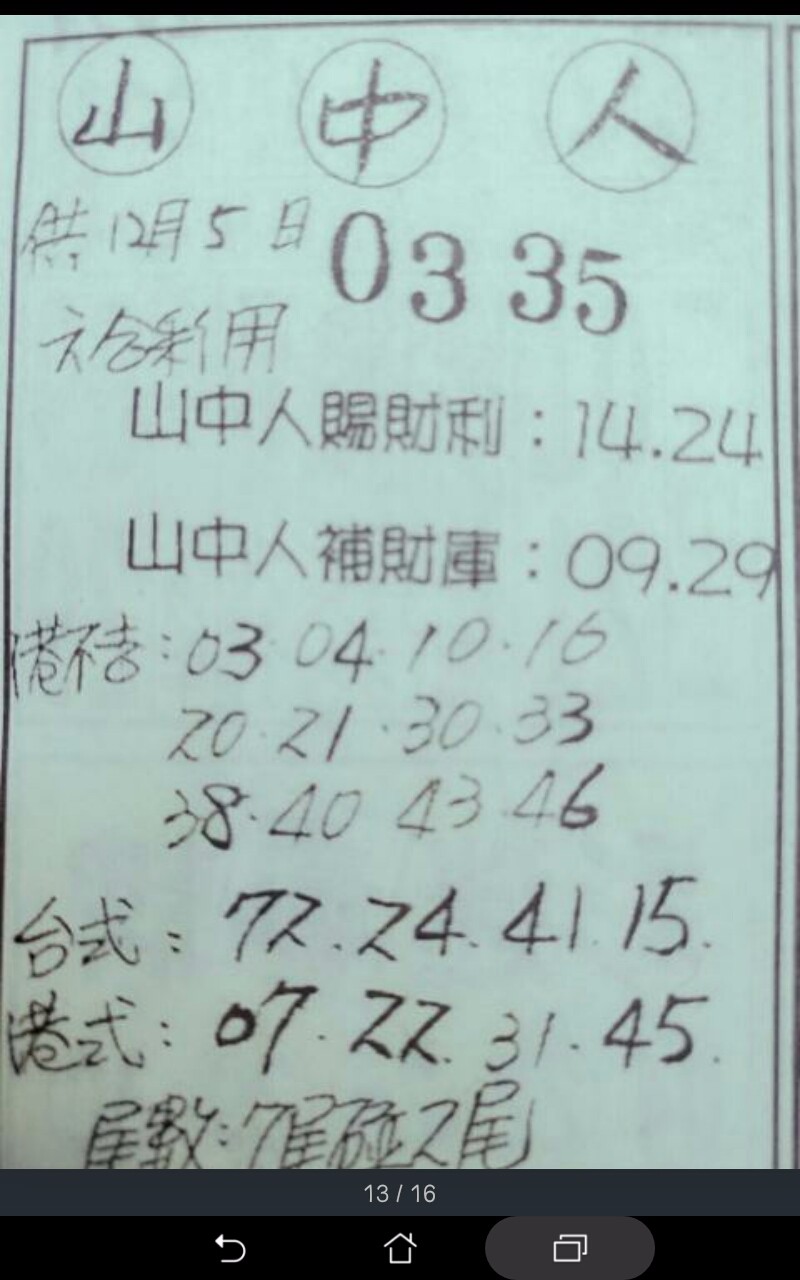 山 中 人
供12月5日 03 35
六合彩用
山中人賜財利：14.24
山中人補財庫：09.29
港不去：03 04·10·16
20·21·30·33
38·40 43·46
台式：72.24.41.15.
港式：07.22.31.45.
尾數：7尾碰2尾
13 / 16